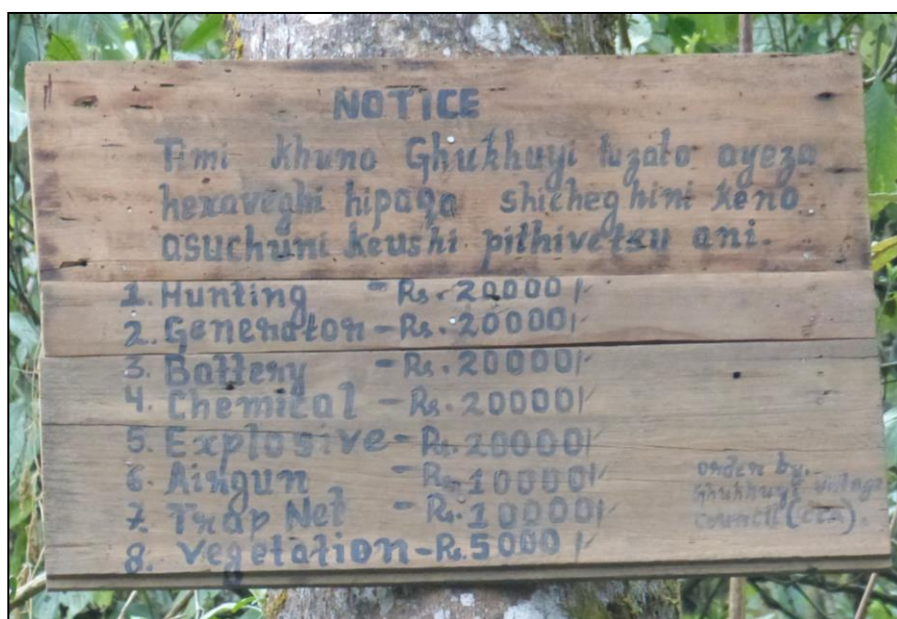 NOTICE
Timi khuno Ghukhuyi tuzato ayeza
hexaveghi hipaqo shicheghini keno
asuchuni keushi pithivetsu ani.
1. Hunting - Rs. 20000/-
2. Generator - Rs. 20000/-
3. Battery - Rs. 20000/-
4. Chemical - Rs. 20000/-
5. Explosive - Rs. 20000/-
6. Airgun - Rs. 10000/-
7. Trap Net - Rs. 10000/-
8. Vegetation - Rs. 5000/-
Order by.
Ghukhuyi Village
Council